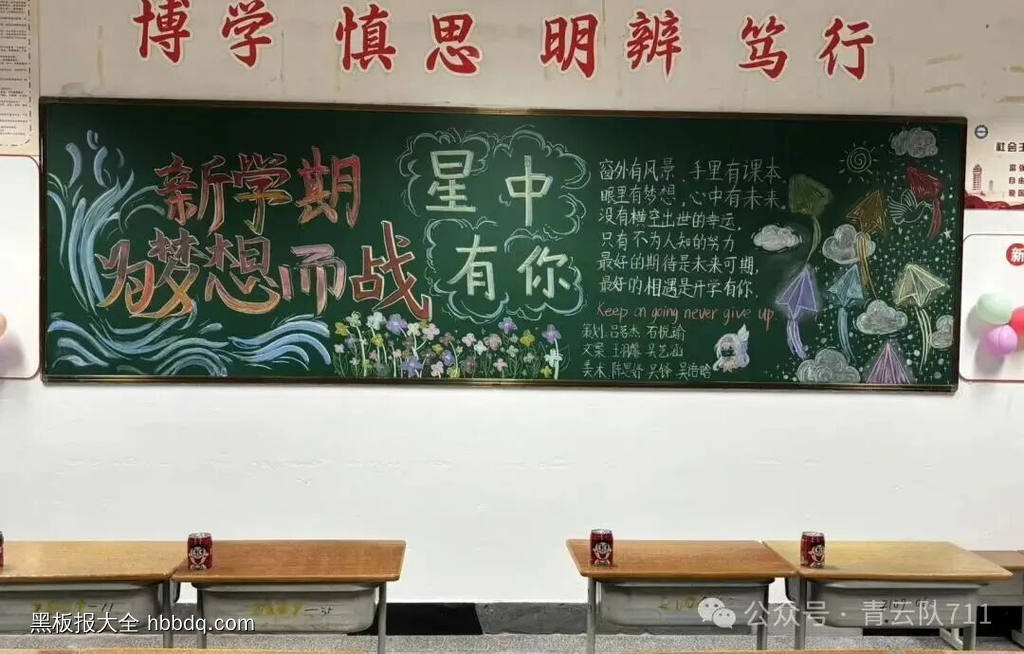 博学 慎思 明辨 笃行
新学期
为梦想而战
星中
有你
窗外有风景，手里有课本
眼里有梦想，心中有未来。
没有横空出世的幸运，
只有不为人知的努力
最好的期待是未来可期，
最好的相遇是开学有你.
Keep on going never give up
策划:
文案
美术
社会主
自由
爱国
新
黑板报大全 hbbdq.com
公众号·青云队711